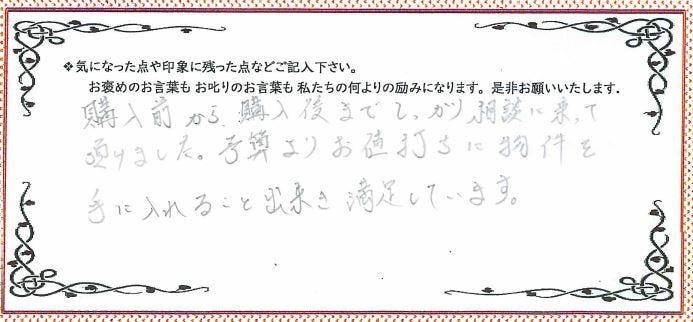 ❖気になった点や印象に残った点などご記入下さい。
お褒めのお言葉も お叱りのお言葉も 私たちの何よりの励みになります。是非お願いいたします.
購入前から、購入後までしっかり相談に来って
頂けました。予算よりお値打ちに物件を
手に入れること出来き満足しています。